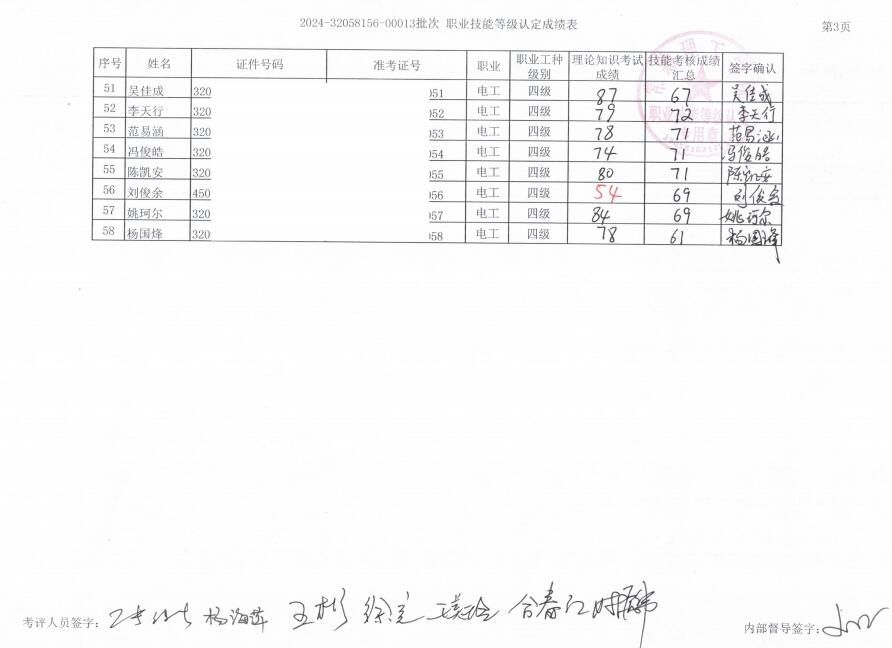 2024-32058156-00013批次 职业技能等级认定成绩表
第3页
序号 姓名 证件号码 准考证号 职业 职业工种级别 理论知识考试成绩 技能考核成绩汇总 签字确认
51 吴佳成 320 051 电工 四级 87 67 吴佳成
52 李天行 320 052 电工 四级 79 72 李天行
53 范易涵 320 053 电工 四级 78 71 范易涵
54 冯俊皓 320 054 电工 四级 74 71 冯俊皓
55 陈凯安 320 055 电工 四级 80 71 陈凯安
56 刘俊余 450 056 电工 四级 54 69 刘俊余
57 姚珂尔 320 057 电工 四级 84 69 姚珂尔
58 杨国烽 320 058 电工 四级 78 61 杨国烽
考评人员签字： 杨海萍 王彬
内部督导签字：